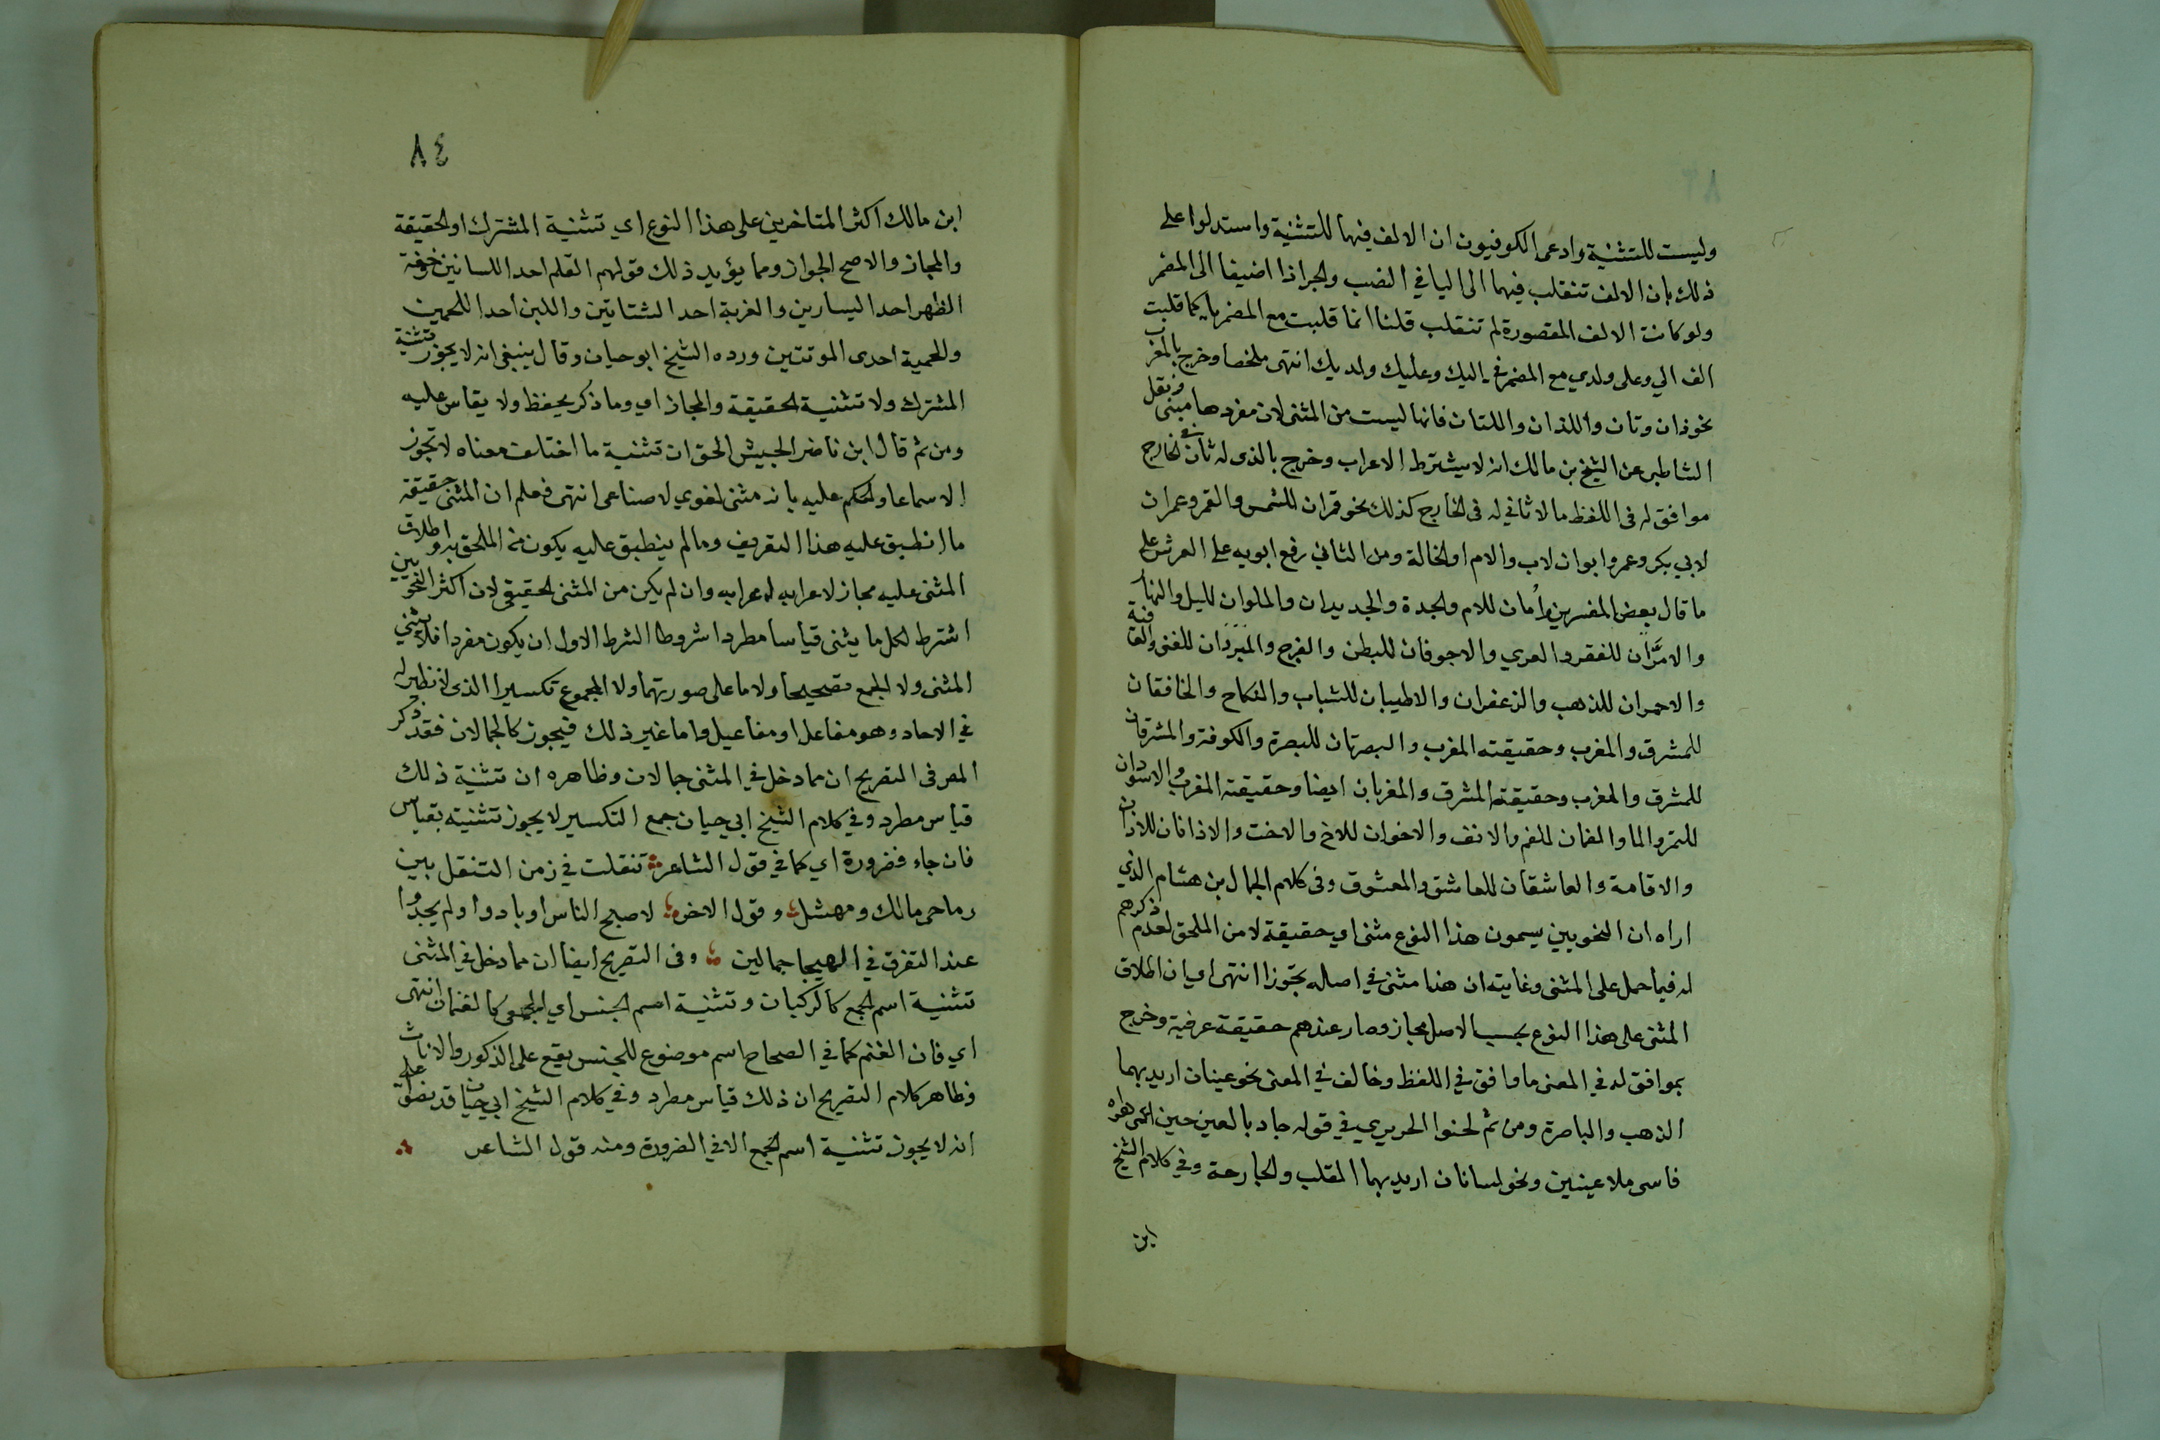 وليست للتثنية وادعى الكوفيون ان الالف فيها للتثنية واستدلوا على
ذلك بان الالف تنقلب فيهما الى اليا في النصب والجر اذا اضيفا الى المضمر
ولو كانت الالف المقصورة لم تنقلب قلنا انما قلبت مع المضمر يا كما قلبت
الف الي وعلى ولدي مع المضمر في اليك وعليك ولديك انتهى ملخصا وخرج بالمعرب
نحو ذان وتان واللذان واللتان فانها ليست من المثنى لان مفردها مبنى ونقل
الشاطبى عن الشيخ بن مالك انه لا يشترط الاعراب وخرج بالذى له ثان في الخارج
موافق له فى اللفظ ما لا ثاني له فى الخارج كذلك نحو قمران للشمس والقمر وعمران
لابي بكر وعمر وابوان لاب والام او الخالة ومن الثاني رفع ابويه على العرش على
ما قال بعض المفسرين وأمان للام والجدة والجديدان والملوان لليل والنهار
والامرّان للفقر والعري والاجوفان للبطن والفرج والمبردان للغنى والعافية
والاحمران للذهب والزعفران والاطيبان للشباب والنكاح والخافقان
للمشرق والمغرب وحقيقته المغرب والبصرتان للبصرة والكوفة والمشرقان
للمشرق والمغرب وحقيقته المشرق والمغربان ايضا وحقيقته المغرب والاسودان
للتمر والما والفمان للفم والانف والاخوان للاخ والاخت والاذانان للاذان
والاقامة والعاشقان للعاشق والمعشوق وفى كلام الجمال بن هشام الذي
اراه ان النحويين يسمون هذا النوع مثنى اي حقيقة لا من الملحق لعدم ذكرهم
له فيما حمل على المثنى وغايته ان هذا مثنى في اصله تجوزا انتهى اي ان اطلاق
المثنى على هذا النوع بحسب الاصل مجاز وصار عندهم حقيقة عرفية وخرج
بموافق له في المعنى ما وافق في اللفظ وخالف في المعنى نحو عينان اريد بهما
الذهب والباصرة ومن ثم لحنوا الحريري في قوله جاد بالعين حين اعمى هواه
فاسى ملا عينين ونحو لسانان اريد بهما القلب والجارحة وفي كلام الشيخ
ابن
٨٤
ابن مالك اكثر المتاخرين على هذا النوع اي تثنية المشترك او الحقيقة
والمجاز والاصح الجواز ومما يؤيد ذلك قولهم القلم احد اللسانين وخفة
الظهر احد اليسارين والغربة احد الشتاتين واللبن احد اللحمين
والحمية احدى الموتتين ورده الشيخ ابو حيان وقال ينبغى انه لا يجوز تثنية
المشترك ولا تثنية الحقيقة والمجاز اي وما ذكر يحفظ ولا يقاس عليه
ومن ثم قال ابن ناضر الجيش الحق ان تثنية ما اختلف معناه لا تجوز
الا سماعا والحكم عليه بانه مثنى لغوي لا صناعى انتهى فعلم ان المثنى حقيقة
ما انطبق عليه هذا التعريف وما لم ينطبق عليه يكون من الملحق به واطلاق
المثنى عليه مجاز لاعرابه اعرابه وان لم يكن من المثنى الحقيقى لان اكثر النحويين
اشترط لكل ما يثنى قياسا مطردا شروطا الشرط الاول ان يكون مفردا فلا يثني
المثنى ولا الجمع تصحيحا ولا ما على صورتهما ولا المجموع تكسيرا الذى لا نظير له
في الاحاد وهو مفاعل او مفاعيل واما غير ذلك فيجوز كالجمالان فقد ذكر
المص فى التصريح ان مما دخل في المثنى جمالان وظاهره ان تثنية ذلك
قياس مطرد وفي كلام الشيخ ابي حيان جمع التكسير لا يجوز تثنيته بقياس
فان جاء فضرورة اي كما في قول الشاعر تنقلت في زمن التنقل بين
رماحى مالك ومهشل وقول الاخر لاصبح الناس اوبادوا ولم يجدوا
عند التفرق في الهيجا جمالين وفى التصريح ايضا ان مما دخل في المثنى
تثنية اسم الجمع كالركبان وتثنية اسم الجنس اي الجمعى كالغنمان انتهى
اي فان الغنم كما في الصحاح اسم موضوع للجنس يقع على الذكور والاناث
وظاهر كلام التصريح ان ذلك قياس مطرد وفي كلام الشيخ ابي حيان قد نصوا على
انه لا يجوز تثنية اسم الجمع الا في الضرورة ومنه قول الشاعر